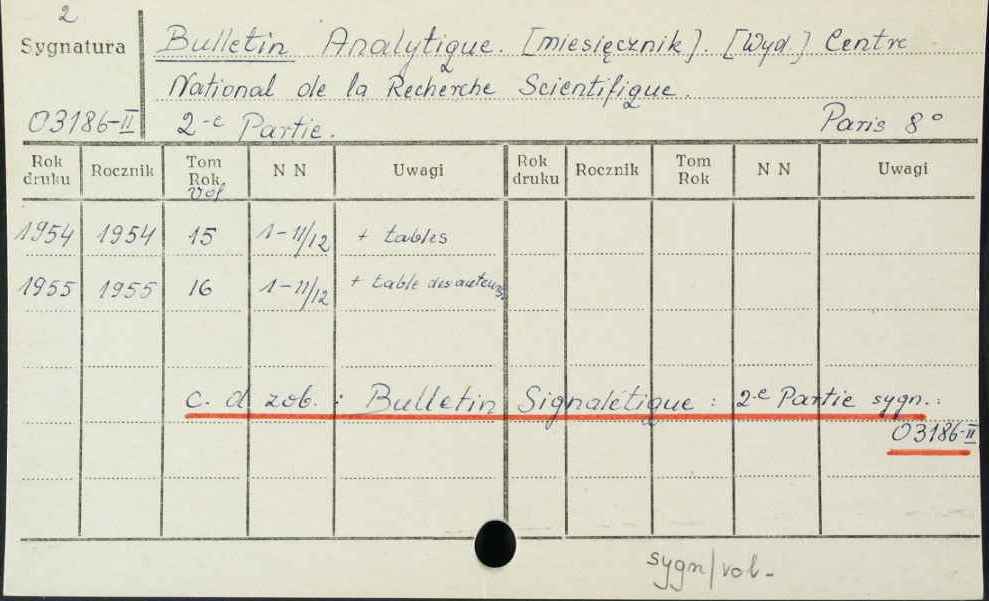 2
Sygnatura
Bulletin Analytique. [miesięcznik]. [Wyd] Centre
National de la Recherche Scientifique.
03186-II 2-e Partie. Paris 8°
Rok druku Rocznik Tom Rok Vol N N Uwagi Rok druku Rocznik Tom Rok N N Uwagi
1954 1954 15 1-11/12 + tables
1955 1955 16 1-11/12 + table des auteurs
c. d zob. : Bulletin Signalétique : 2-e Partie sygn.:
03186-II
sygn/vol-